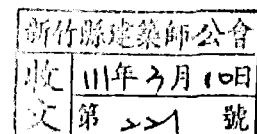 新竹縣建築師公會
收 111年3月10日
文 第 221 號